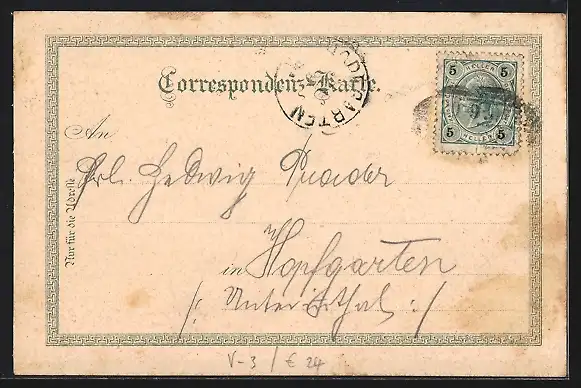 Correspondenz-Karte.
5 HELLER 5
5 HELLER 5
HOPFGARTEN
An
Frl. Hedwig Prader
in Hopfgarten
/: Unterinthal :/
Nur für die Adresse
V-3 / € 24